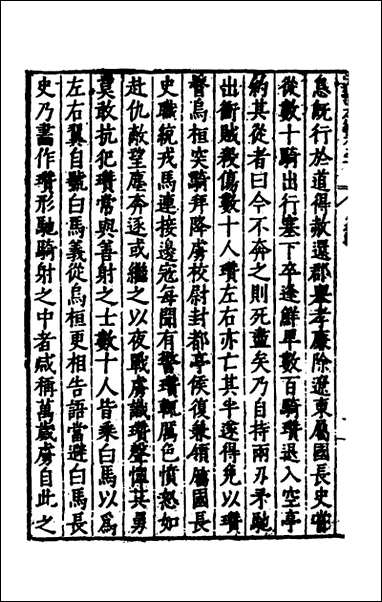 息既行於道得赦還郡舉孝廉除遼東屬國長史嘗
從數十騎出行塞下卒逢鮮卑數百騎瓚退入空亭
約其從者曰今不奔之則死盡矣乃自持兩刃矛馳
出衝賊殺傷數十人瓚左右亦亡其半遂得免以瓚
督烏桓突騎拜降虜校尉封都亭侯復兼領屬國長
史職統戎馬連接邊寇每聞有警瓚輒厲色憤怒如
赴仇敵望塵奔逐或繼之以夜戰虜識瓚聲憚其勇
莫敢抗犯瓚常與善射之士數十人皆乘白馬以為
左右翼自號白馬義從烏桓更相告語當避白馬長
史乃畫作瓚形馳騎射之中者咸稱萬歲虜自此之